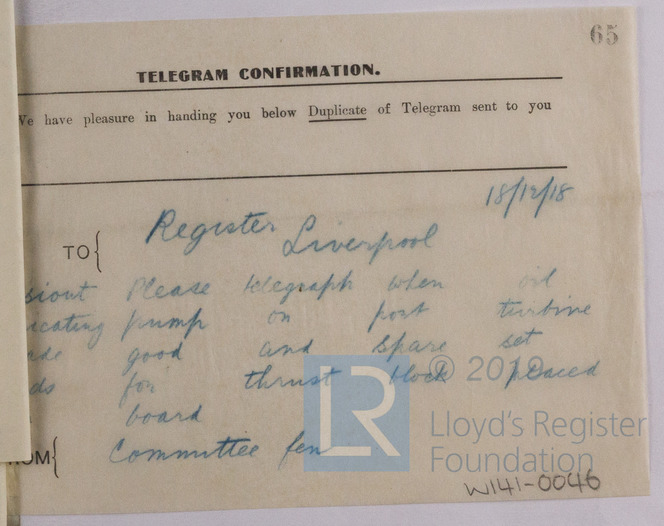 65
TELEGRAM CONFIRMATION.
We have pleasure in handing you below Duplicate of Telegram sent to you
18/12/18
TO { Register Liverpool
siout Please telegraph when oil
icating pump on port turbine
ade good and spare set
ds for thrust block placed
board
OM { Committee fen
LR
© 2019
Lloyd's Register
Foundation
W141-0046